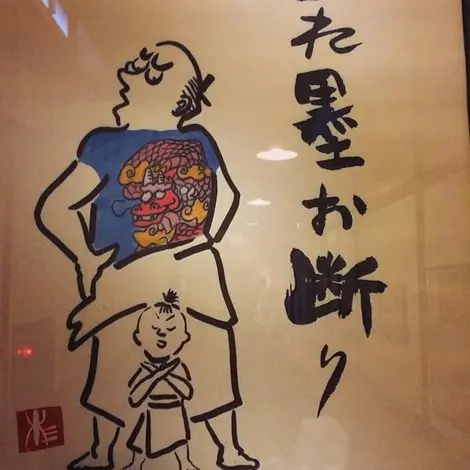 れ墨お断り